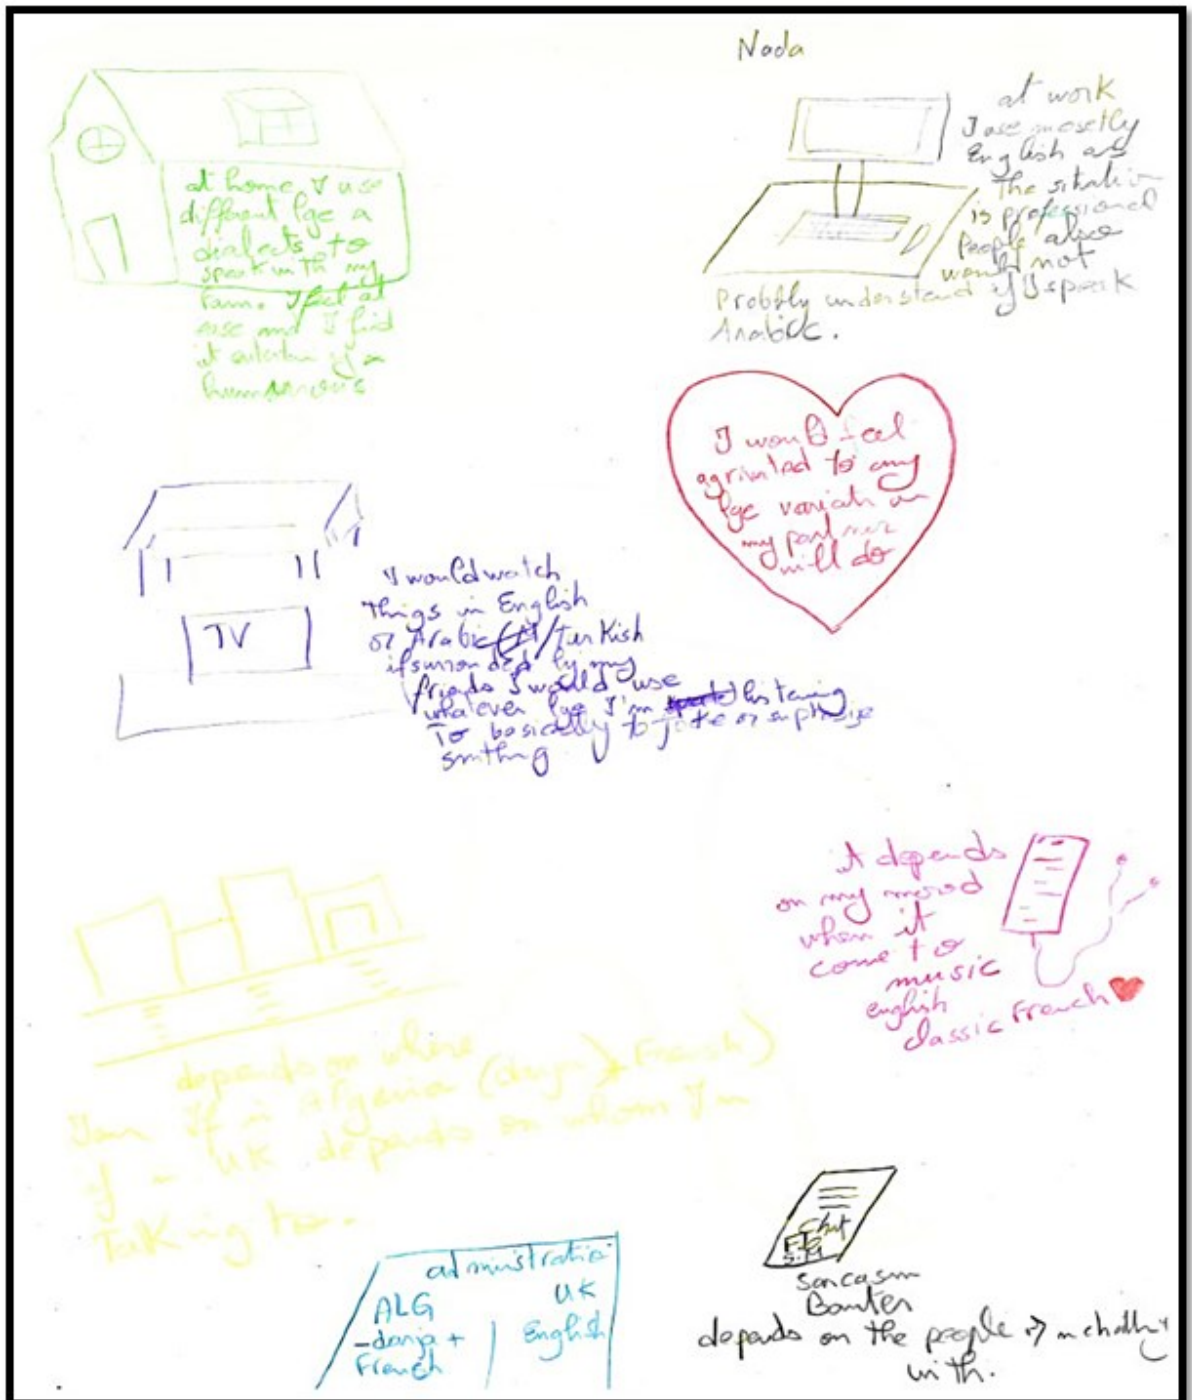 Nada
at home I use
different lge a
dialects to
speak with my
fam. I feel at
ease and I find
it
at work
I use mosetly
English as
The
is professional
People also
would not
Probbly understand if I speak
Arabic.
I would feel
to any
lge
my partner
will do
I would watch
Things in English
or Arabic /Turkish
if surronded by my
friends I would use
whatever lge I'm listening
To basically to joke or
smthing
TV
it depends
on my mood
when it
come to
music
english
classic French
depends on where
I am If in Algeria (darja + French)
if in UK depends on whom I'm
Talking to.
administration
ALG
-darja +
French
UK
English
Chat
sarcasm
Banter
depends on the people I'm
with.